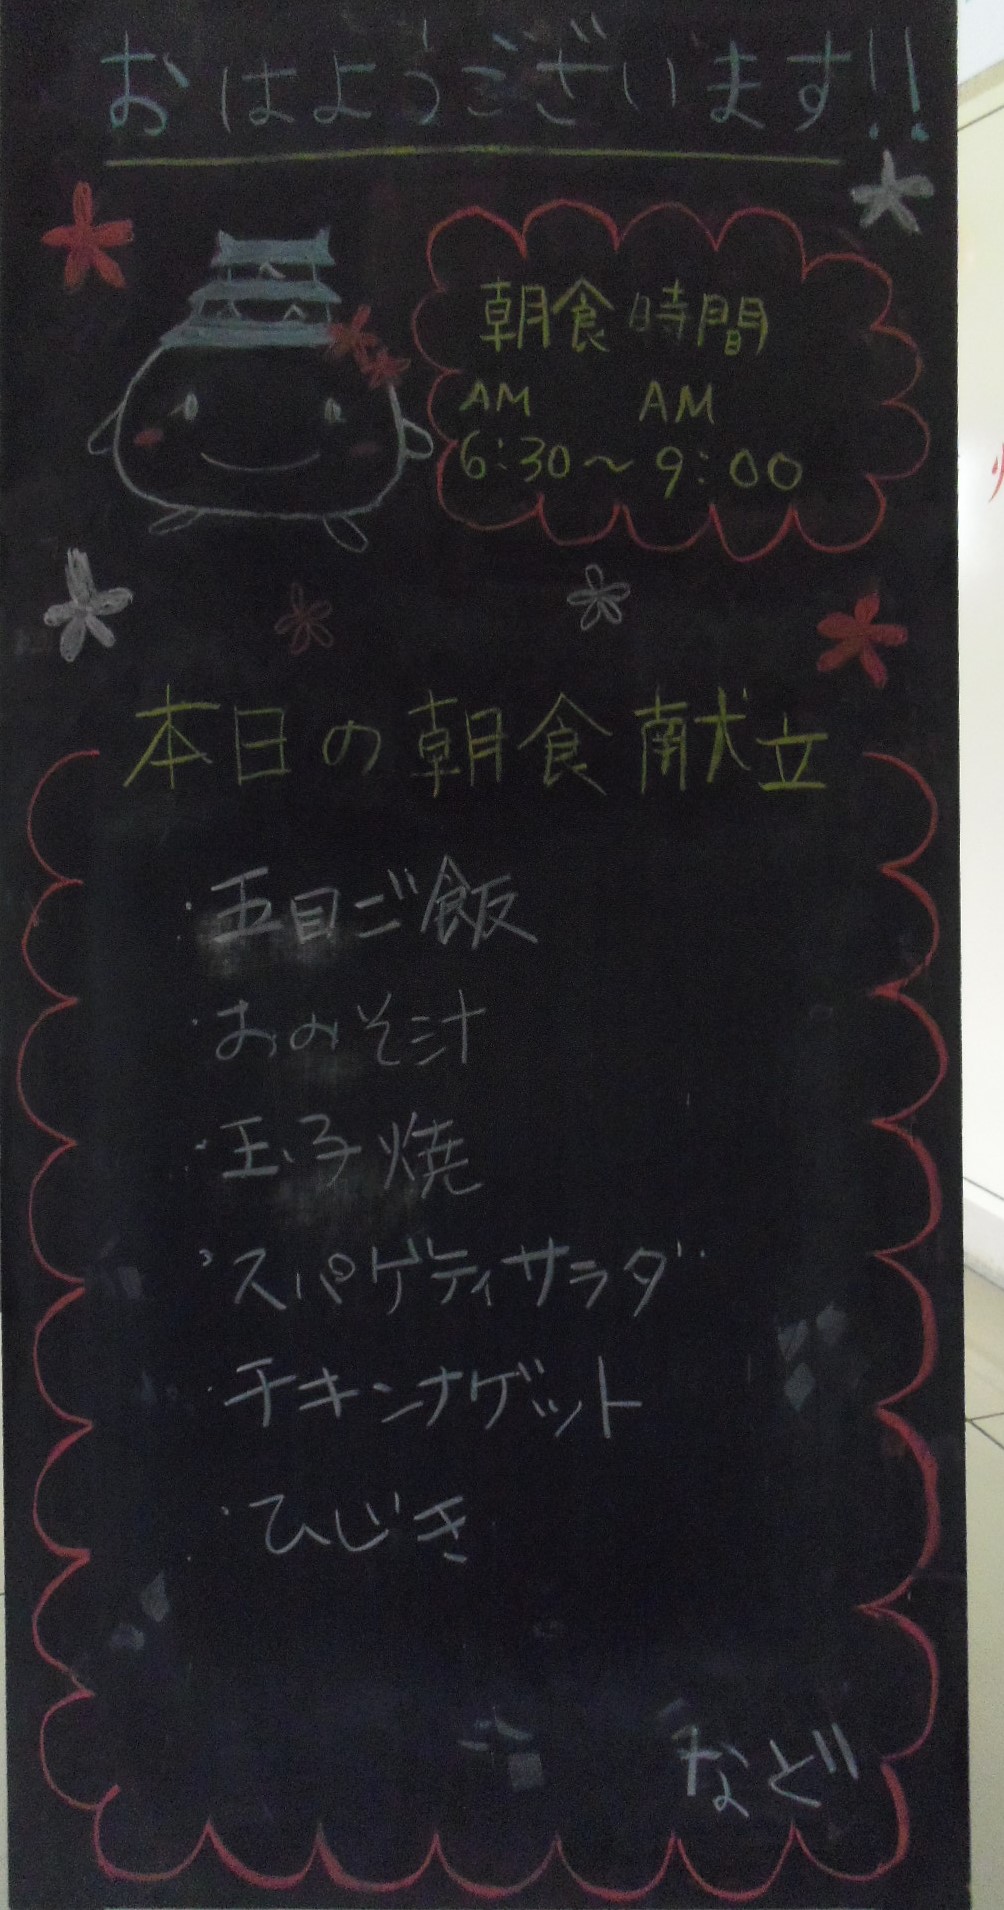 おはようございます!!
朝食時間
AM AM
6:30～9:00
本日の朝食献立
・五目ご飯
・おみそ汁
・玉子焼
・スパゲティサラダ
・チキンナゲット
・ひじき
など